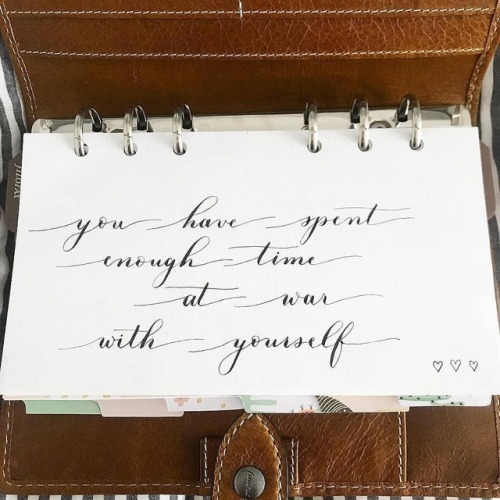 you have spent
enough time
at war
with yourself
♡♡♡
filofax